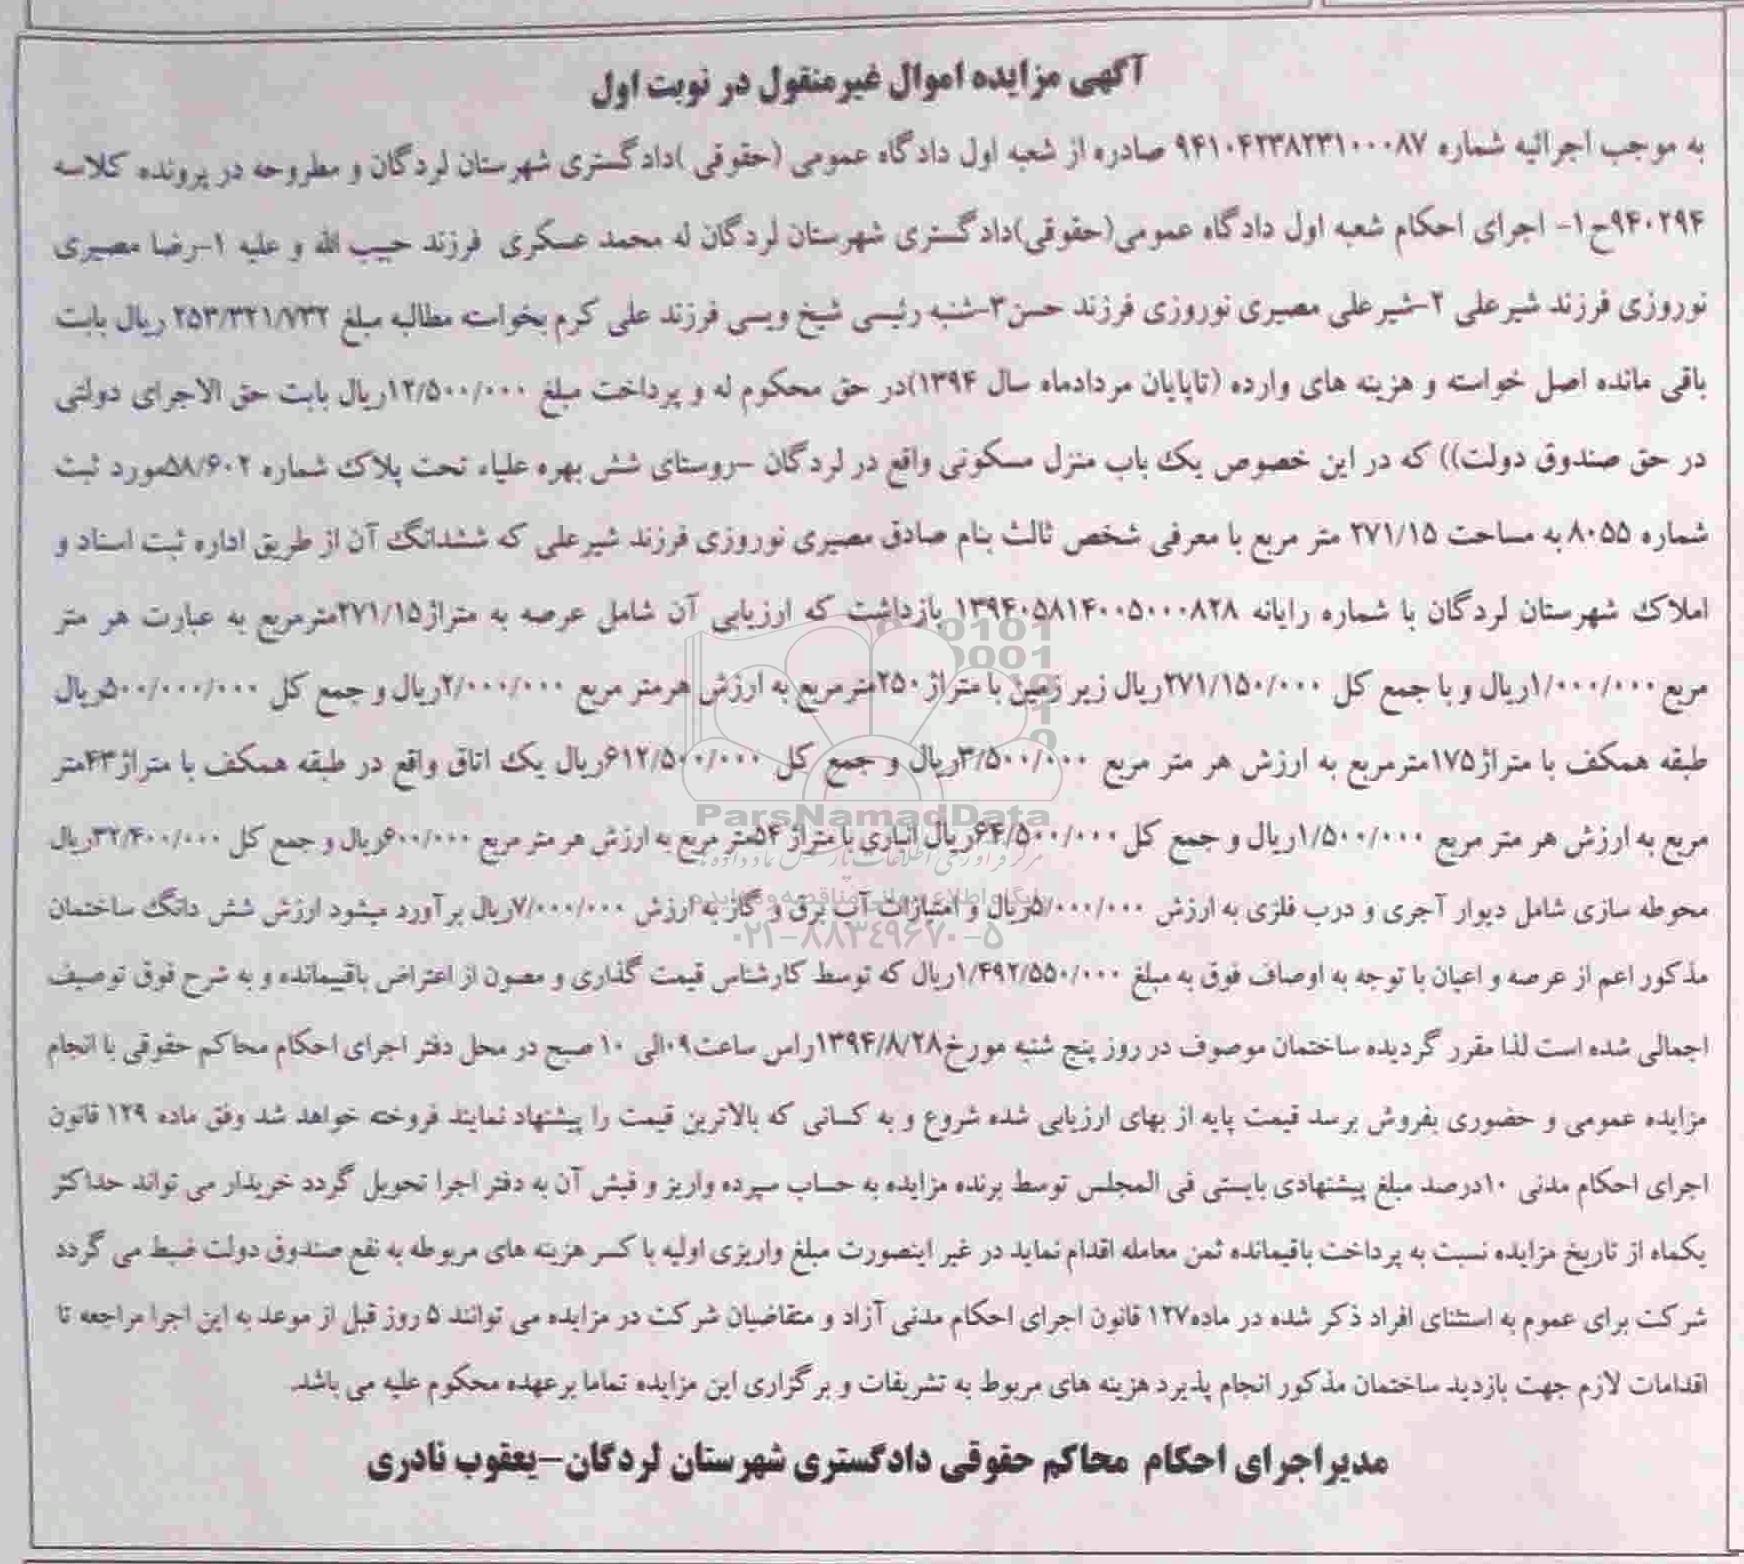 آگهی مزایده اموال غیرمنقول در نوبت اول
به موجب اجرائیه شماره ۹۴۱۰۴۲۳۸۲۳۱۰۰۰۸۷ صادره از شعبه اول دادگاه عمومی (حقوقی )دادگستری شهرستان لردگان و مطروحه در پرونده کلاسه
۹۴۰۲۹۴ح۱- اجرای احکام شعبه اول دادگاه عمومی(حقوقی)دادگستری شهرستان لردگان له محمد عسکری فرزند حبیب الله و علیه ۱-رضا مصیری
نوروزی فرزند شیرعلی ۲-شیرعلی مصیری نوروزی فرزند حسن۳-شنبه رئیسی شیخ ویسی فرزند علی کرم بخواسته مطالبه مبلغ ۲۵۳/۳۲۱/۷۳۲ ریال بابت
باقی مانده اصل خواسته و هزینه های وارده (تاپایان مردادماه سال ۱۳۹۴)در حق محکوم له و پرداخت مبلغ ۱۲/۵۰۰/۰۰۰ریال بابت حق الاجرای دولتی
در حق صندوق دولت)) که در این خصوص یک باب منزل مسکونی واقع در لردگان -روستای شش بهره علیاء تحت پلاک شماره ۵۸/۶۰۲مورد ثبت
شماره ۸۰۵۵ به مساحت ۲۷۱/۱۵ متر مربع با معرفی شخص ثالث بنام صادق مصیری نوروزی فرزند شیرعلی که ششدانگ آن از طریق اداره ثبت اسناد و
املاک شهرستان لردگان با شماره رایانه ۱۳۹۴۰۵۸۱۴۰۰۵۰۰۰۸۲۸ بازداشت که ارزیابی آن شامل عرصه به متراژ۲۷۱/۱۵مترمربع به عبارت هر متر
مربع ۱/۰۰۰/۰۰۰ریال و با جمع کل ۲۷۱/۱۵۰/۰۰۰ریال زیر زمین با متراژ ۲۵۰مترمربع به ارزش هرمتر مربع ۲/۰۰۰/۰۰۰ریال و جمع کل ۵۰۰/۰۰۰/۰۰۰ریال
طبقه همکف با متراژ۱۷۵مترمربع به ارزش هر متر مربع ۳/۵۰۰/۰۰۰ریال و جمع کل ۶۱۲/۵۰۰/۰۰۰ریال یک اتاق واقع در طبقه همکف با متراژ۴۳متر
مربع به ارزش هر متر مربع ۱/۵۰۰/۰۰۰ریال و جمع کل ۶۴/۵۰۰/۰۰۰ریال انباری با متراژ ۵۴متر مربع به ارزش هر متر مربع ۶۰۰/۰۰۰ریال و جمع کل ۳۲/۴۰۰/۰۰۰ریال
محوطه سازی شامل دیوار آجری و درب فلزی به ارزش ۵/۰۰۰/۰۰۰ریال و امتیازات آب برق و گاز به ارزش ۷/۰۰۰/۰۰۰ریال برآورد میشود ارزش شش دانگ ساختمان
مذکور اعم از عرصه و اعیان با توجه به اوصاف فوق به مبلغ ۱/۴۹۲/۵۵۰/۰۰۰ریال که توسط کارشناس قیمت گذاری و مصون از اعتراض باقیمانده و به شرح فوق توصیف
اجمالی شده است لذا مقرر گردیده ساختمان موصوف در روز پنج شنبه مورخ۱۳۹۴/۸/۲۸راس ساعت۰۹الی ۱۰ صبح در محل دفتر اجرای احکام محاکم حقوقی با انجام
مزایده عمومی و حضوری بفروش برسد قیمت پایه از بهای ارزیابی شده شروع و به کسانی که بالاترین قیمت را پیشنهاد نمایند فروخته خواهد شد وفق ماده ۱۲۹ قانون
اجرای احکام مدنی ۱۰درصد مبلغ پیشنهادی بایستی فی المجلس توسط برنده مزایده به حساب سپرده واریز و فیش آن به دفتر اجرا تحویل گردد خریدار می تواند حداکثر
یکماه از تاریخ مزایده نسبت به پرداخت باقیمانده ثمن معامله اقدام نماید در غیر اینصورت مبلغ واریزی اولیه با کسر هزینه های مربوطه به نفع صندوق دولت ضبط می گردد
شرکت برای عموم به استثنای افراد ذکر شده در ماده۱۲۷ قانون اجرای احکام مدنی آزاد و متقاضیان شرکت در مزایده می توانند ۵ روز قبل از موعد به این اجرا مراجعه تا
اقدامات لازم جهت بازدید ساختمان مذکور انجام پذیرد هزینه های مربوط به تشریفات و برگزاری این مزایده تماما برعهده محکوم علیه می باشد.
مدیراجرای احکام محاکم حقوقی دادگستری شهرستان لردگان-یعقوب نادری
ParsNamadData
۰۲۱-۸۸۳۴۹۶۷۰-۵